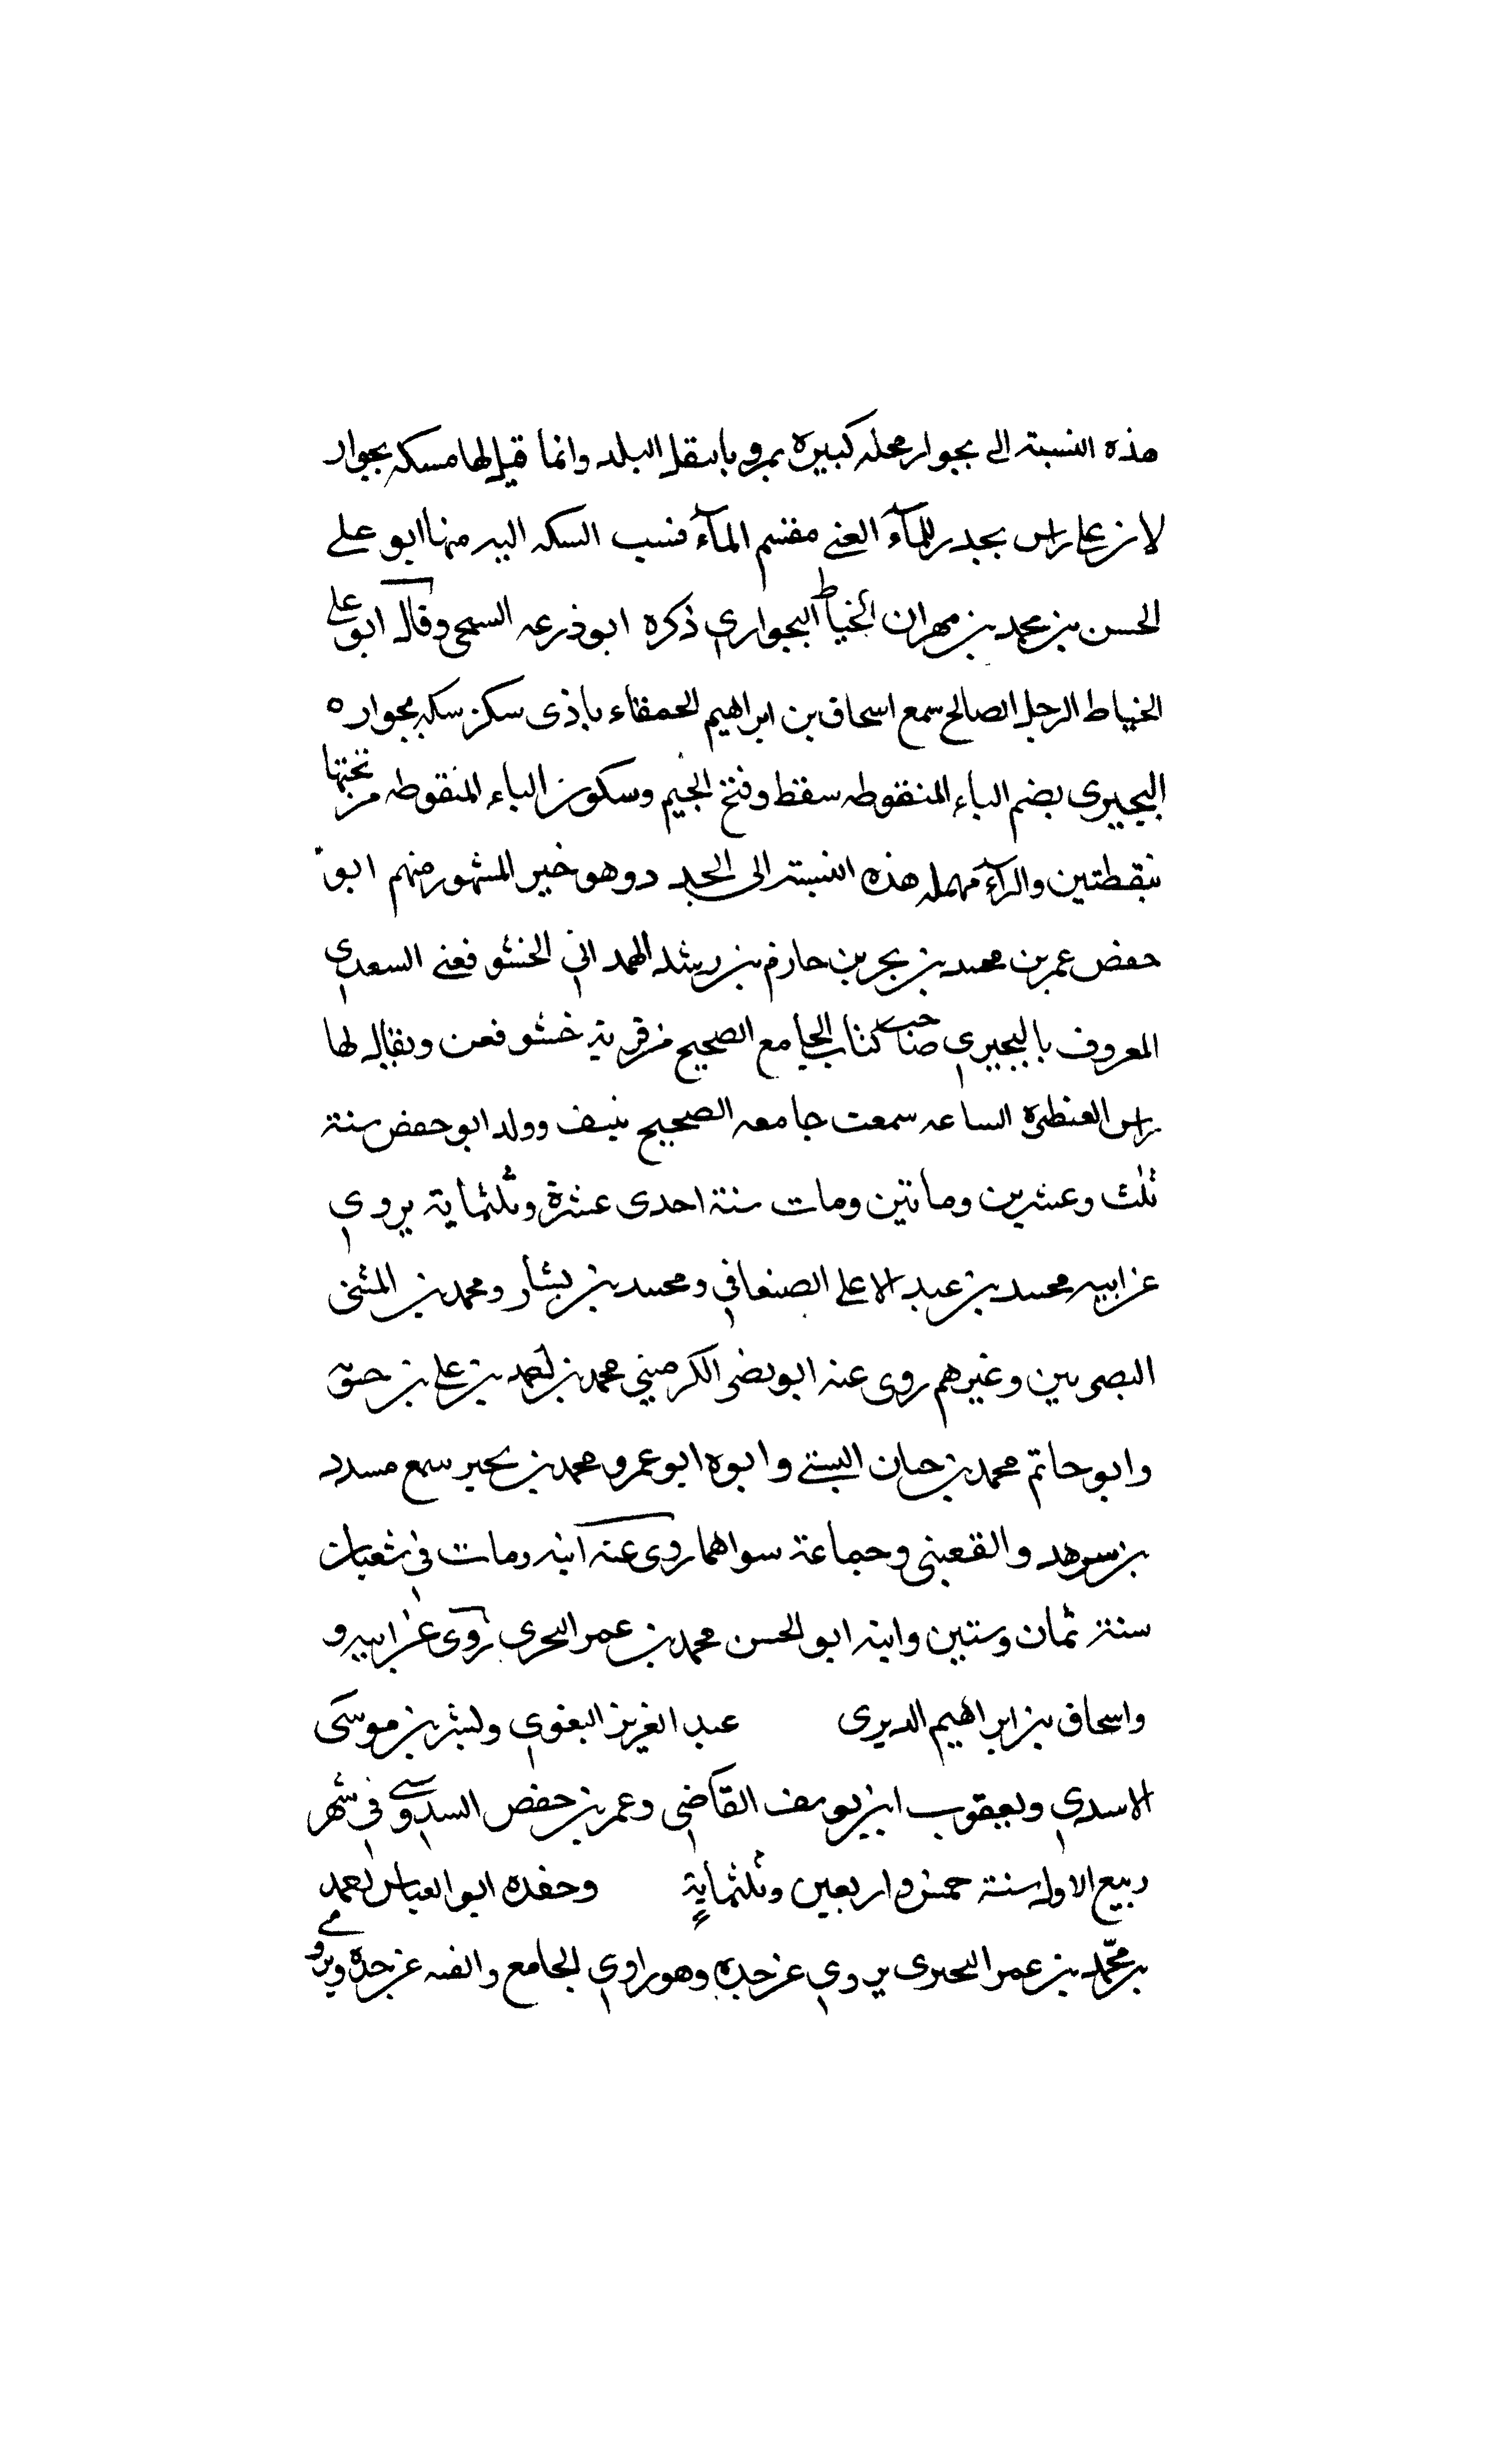 هذه النسبة الى بجوار محله كبيره بمرو باسفل البلد وانما قيل لها سكه بجوار
لان على راس بجدر للمآء العنى مقسم المآء فنسب السكه اليه منها ابو على
الحسن بن محمد بن مهران الخياط البجواري ذكره ابو ذرعه السمحى وقال ابو على
الخياط الرجل الصالح سمع اسحاق بن ابراهيم الحمقاء باذى سكن سكه بجواره
البجيرى بضم الباء المنقوطه سقط وفتح الجيم وسكون الياء المنقوطه من تحتها
بنقطتين والرآء مهمله هذه النسبة الى الجد وهو خير المشهور منهم ابو
حفص عمر بن محمد بن بجر بن حازم بن رشد الهمداني الخشو فعنى السعدي
المعروف بالبجيري صاحب كتاب الجامع الصحيح من قرية خشو فعن ويقال لها
راس القنطره الساعه سمعت جامعه الصحيح بنسف وولد ابو حفص سنة
ثلث وعشرين وماتين ومات سنة احدى عشرة وثلثماية يروي
عن ابيه محمد بن عبد الاعلى الصنعاني ومحمد بن بشار ومحمد بن المثنى
البصريين وغيرهم روى عنه ابو نصر الكرميني محمد بن احمد بن على بن
وابو حاتم محمد بن حبان البستي وابوه ابو عمرو محمد بن بجير سمع مسدد
بن سرهد والقعبنى وجماعة سواهما روى عنه ابنه ومات في شعبان
سنة ثمان وستين وابنه ابو الحسن محمد بن عمر البحرى روى عن ابيه و
واسحاق بن ابراهيم الديرى عبد العزيز البغوي وبشر بن موسى
الاسدي ويعقوب ابن يوسف القاضي وعمر بن حفص السدوسي في شهر
ربيع الاول سنة خمس واربعين وثلثماية وحفده ابو العباس احمد
بن محمد بن عمر البحيرى يروي عن جده وهو راوي الجامع والفه عن جده ويروى